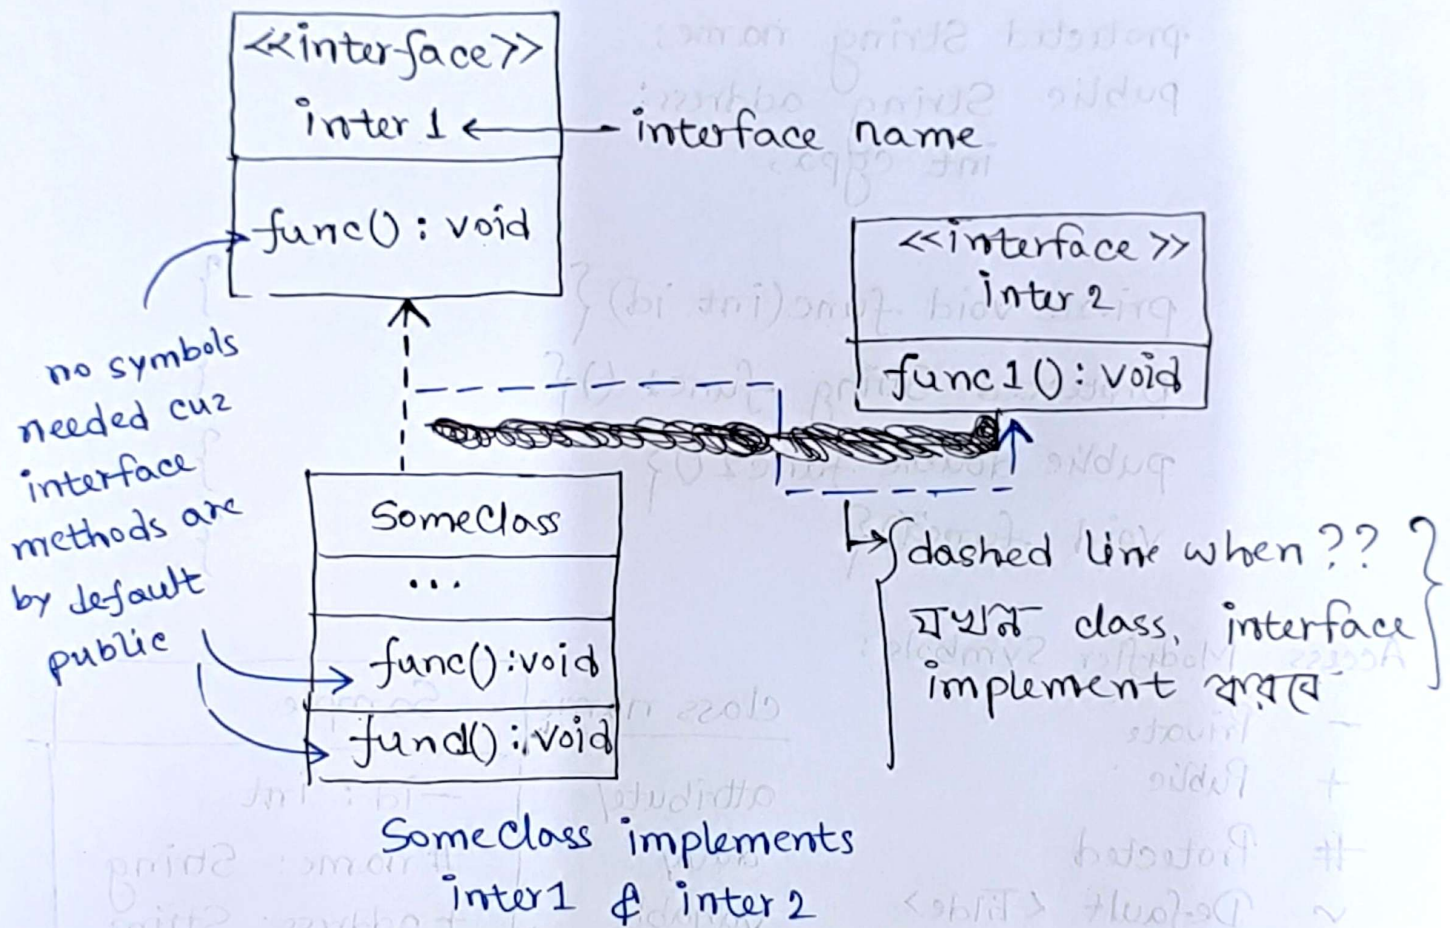 <<interface>>
inter 1
interface name
func() : void
<<interface>>
inter 2
func1() : void
no symbols
needed cuz
interface
methods are
by default
public
SomeClass
...
func() : void
func1() : void
dashed line when ??
যখন class, interface
implement করবে
SomeClass implements
inter1 & inter 2